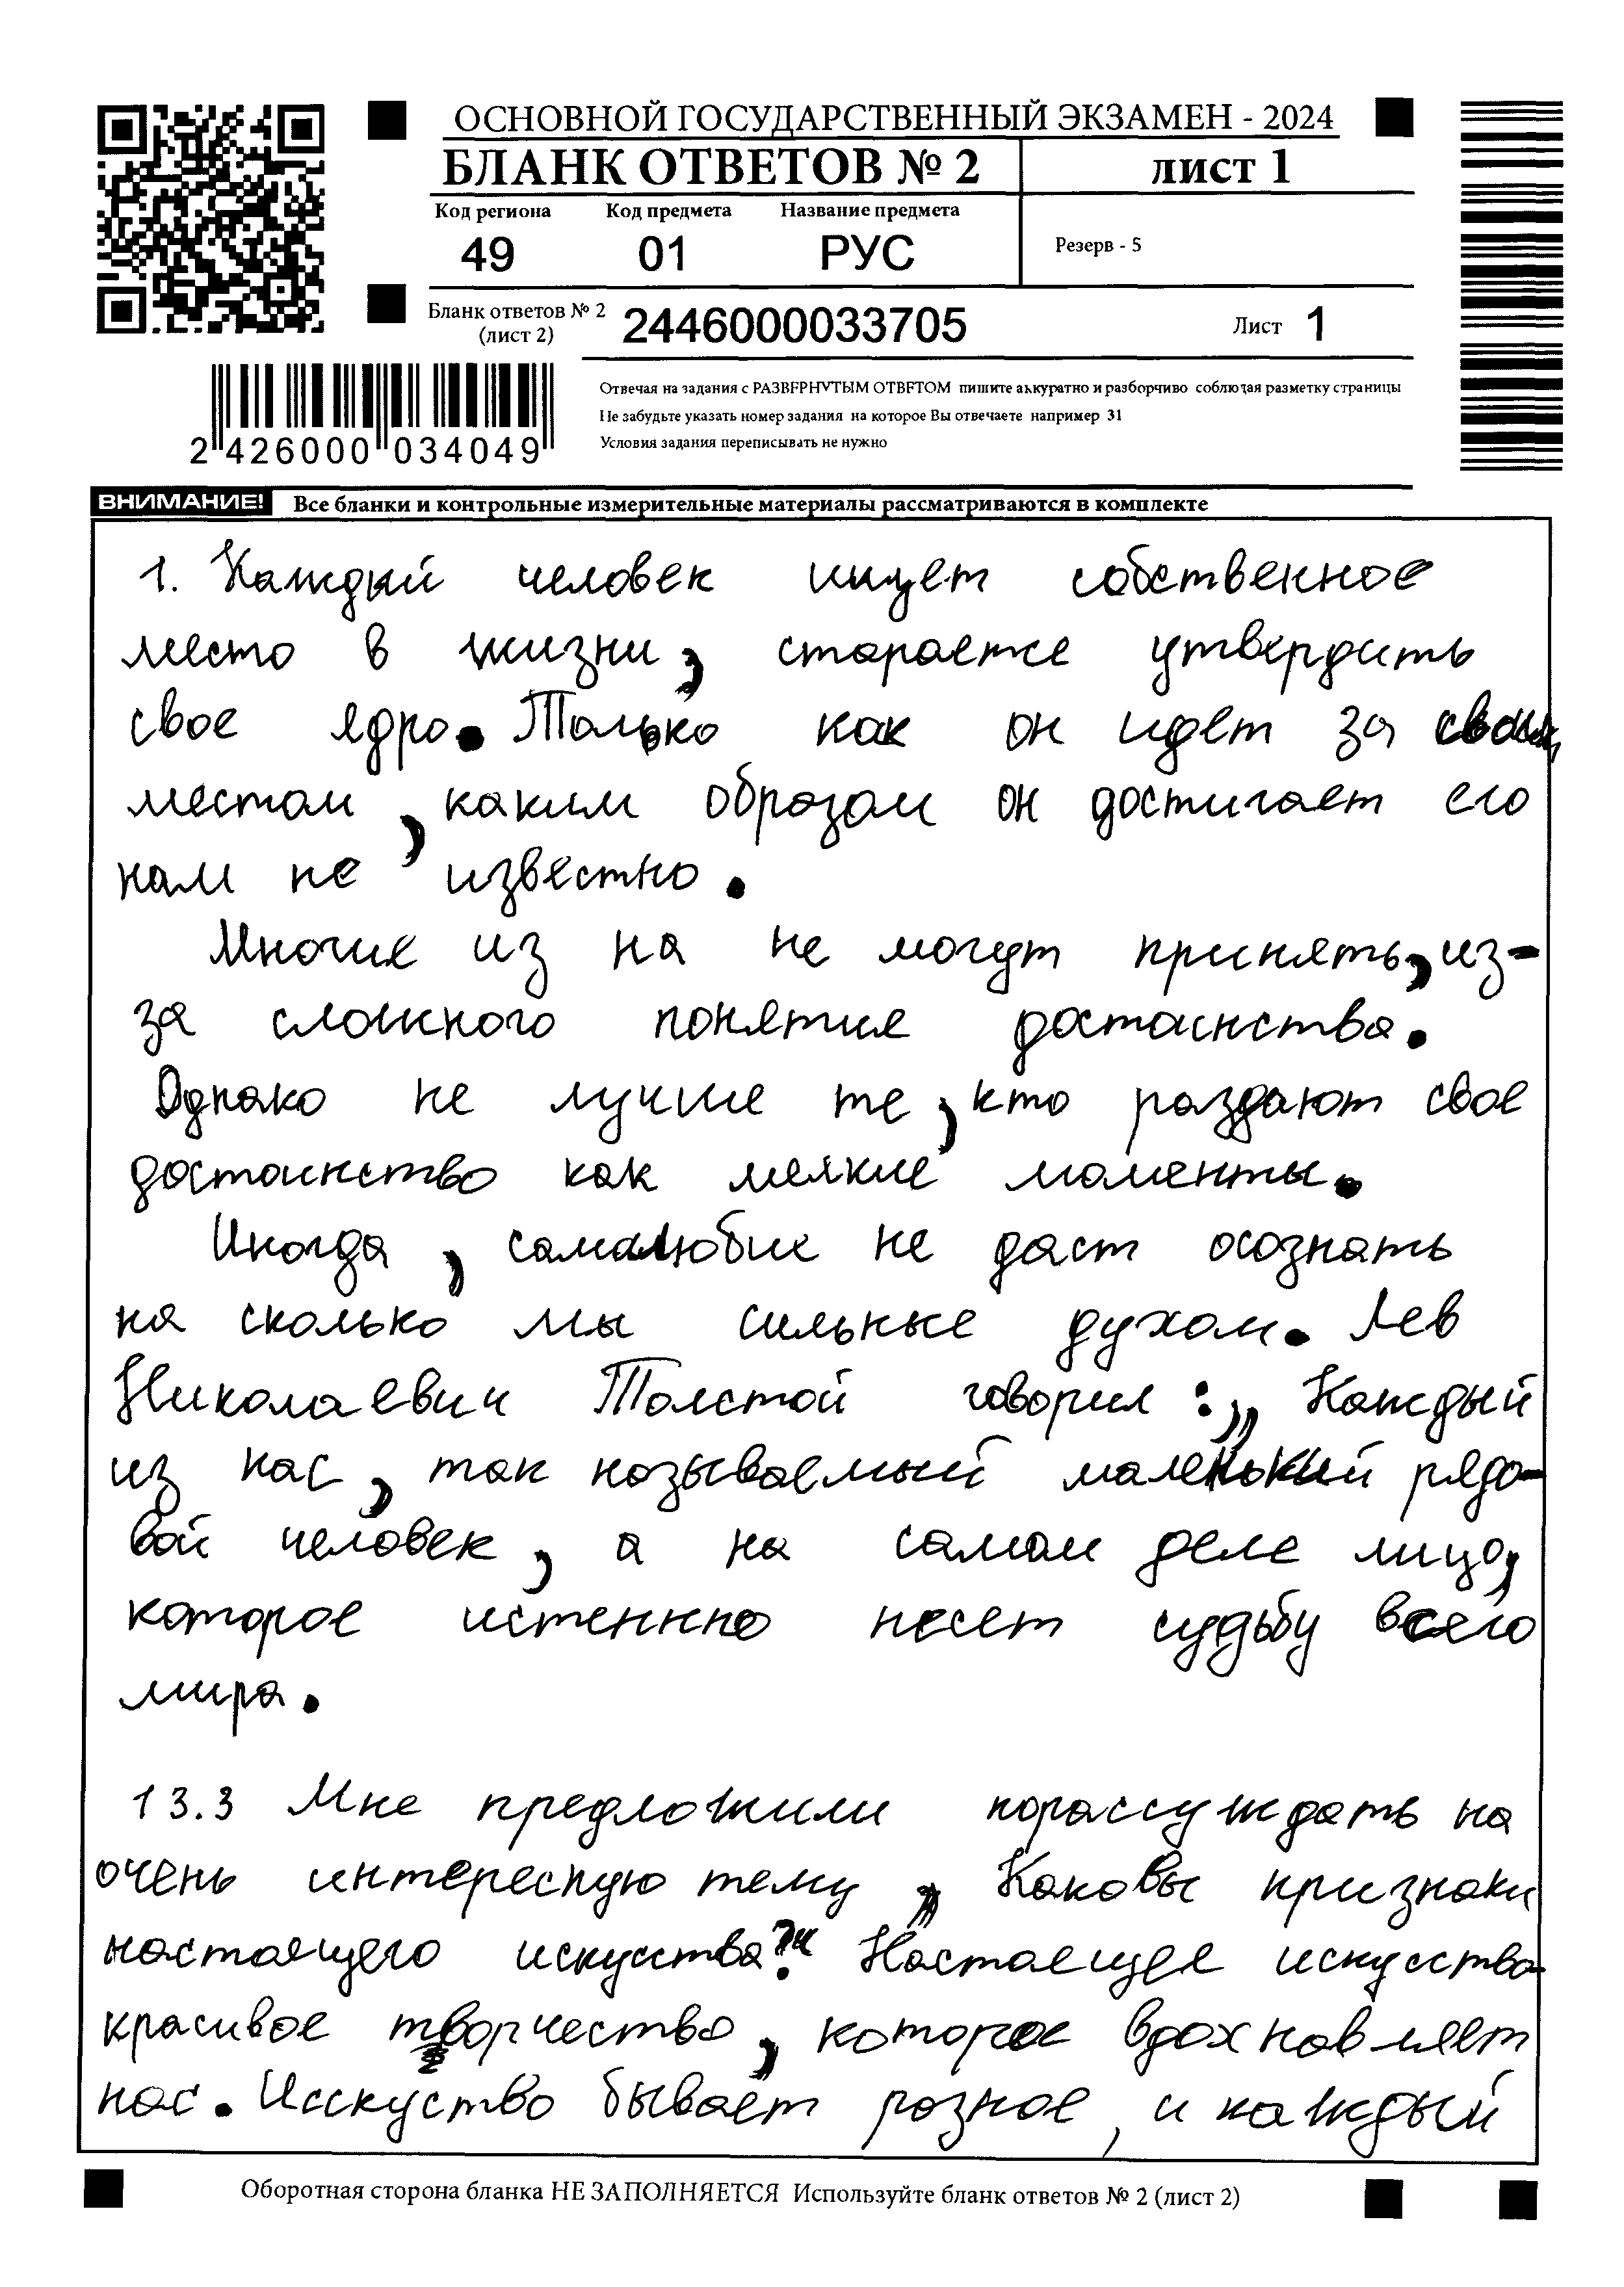 ОСНОВНОЙ ГОСУДАРСТВЕННЫЙ ЭКЗАМЕН - 2024
БЛАНК ОТВЕТОВ № 2 лист 1
Код региона Код предмета Название предмета
49 01 РУС Резерв - 5
Бланк ответов № 2 (лист 2) 2446000033705 Лист 1
2 426000 034049
Отвечая на задания с РАЗВЕРНУТЫМ ОТВЕТОМ пишите аккуратно и разборчиво соблюдая разметку страницы
Не забудьте указать номер задания на которое Вы отвечаете например 31
Условия задания переписывать не нужно
ВНИМАНИЕ! Все бланки и контрольные измерительные материалы рассматриваются в комплекте
1. Каждый человек ищет собственное
место в жизни, стараетсе утвердить
свое ядро. Только как он идет за своим
местом, каким образом он достигает его
нам не известно.
Многие из на не могут принять, из-
за сложного понятия достоинства.
Однако не лучше те, кто раздают свое
достоинство как мелкие моменты.
Иногда, самалюбие не даст осознать
на сколько мы сильные духом. Лев
Николаевич Толстой говорил: „Каждый
из нас, так называемый маленький рядо-
вой человек, а на самом деле лицо,
которое истенно несет судьбу всего
мира.
13.3 Мне предложили порассуждать на
очень интересную тему „Каковы признаки
настоящего искусства?“ Настоящее искусство-
красивое творчество, которое вдохновляет
нас. Исскуство бывает разное, и каждый
Оборотная сторона бланка НЕ ЗАПОЛНЯЕТСЯ Используйте бланк ответов № 2 (лист 2)